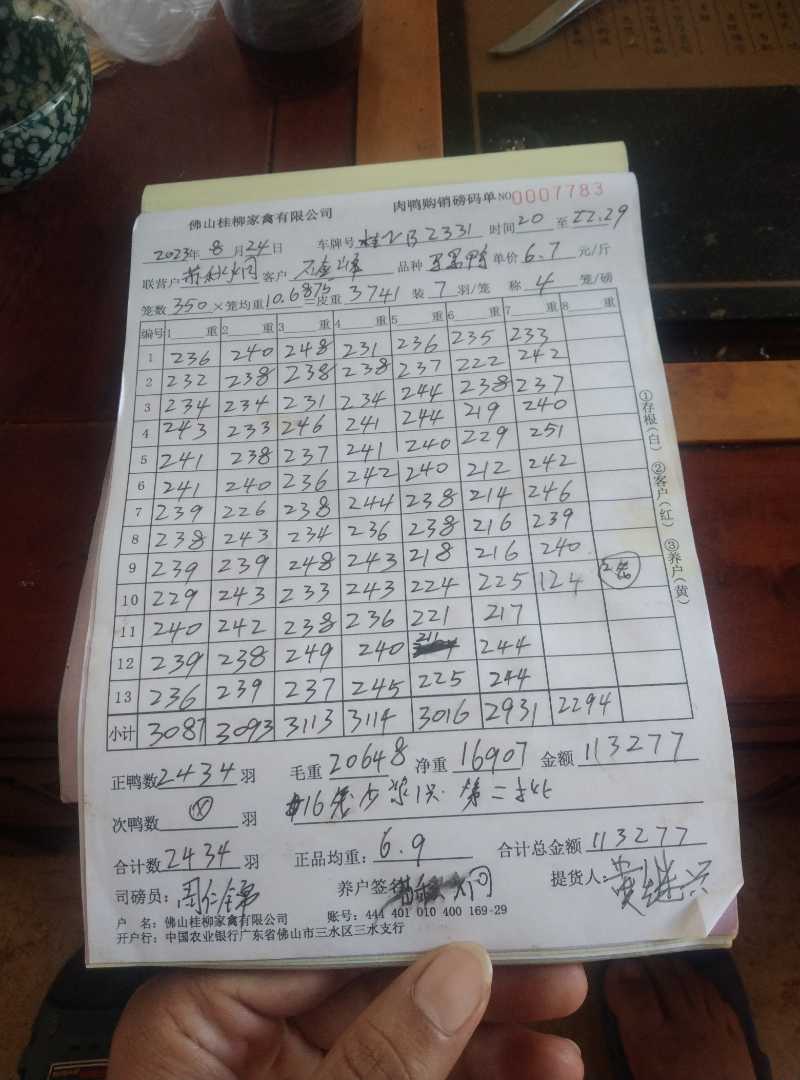 佛山桂柳家禽有限公司 肉鸭购销磅码单 NO 0007783
2023年 8月24日 车牌号 桂 B2331 时间 20 至 22.29
联营户 客户 品种 单价 6.7 元/斤
笼数 350 ×笼均重 10.6875 =皮重 3741 装 7 羽/笼 称 4 笼/磅
编号 1 重 2 重 3 重 4 重 5 重 6 重 7 重 8 重
1 236 240 248 231 236 235 233
2 232 238 238 238 237 222 242
3 234 234 231 234 244 238 237
4 243 233 246 241 244 219 240
5 241 238 237 241 240 229 251
6 241 240 236 242 240 212 242
7 239 226 238 244 238 214 246
8 238 243 234 236 238 216 239
9 239 239 248 243 218 216 240
10 229 243 233 243 224 225 124
11 240 242 238 236 221 217
12 239 238 249 240 211 244
13 236 239 237 245 225 244
小计 3087 3093 3113 3114 3016 2931 2294
正鸭数 2434 羽 毛重 20648 净重 16907 金额 113277
次鸭数 羽 16 少 1只 第二
合计数 2434 羽 正品均重: 6.9 合计总金额 113277
司磅员: 周仁锦 养户签名 提货人: 黄继兴
户 名: 佛山桂柳家禽有限公司 账号: 444 401 010 400 169-29
开户行: 中国农业银行广东省佛山市三水区三水支行
①存根(白) ②客户(红) ③养户(黄)